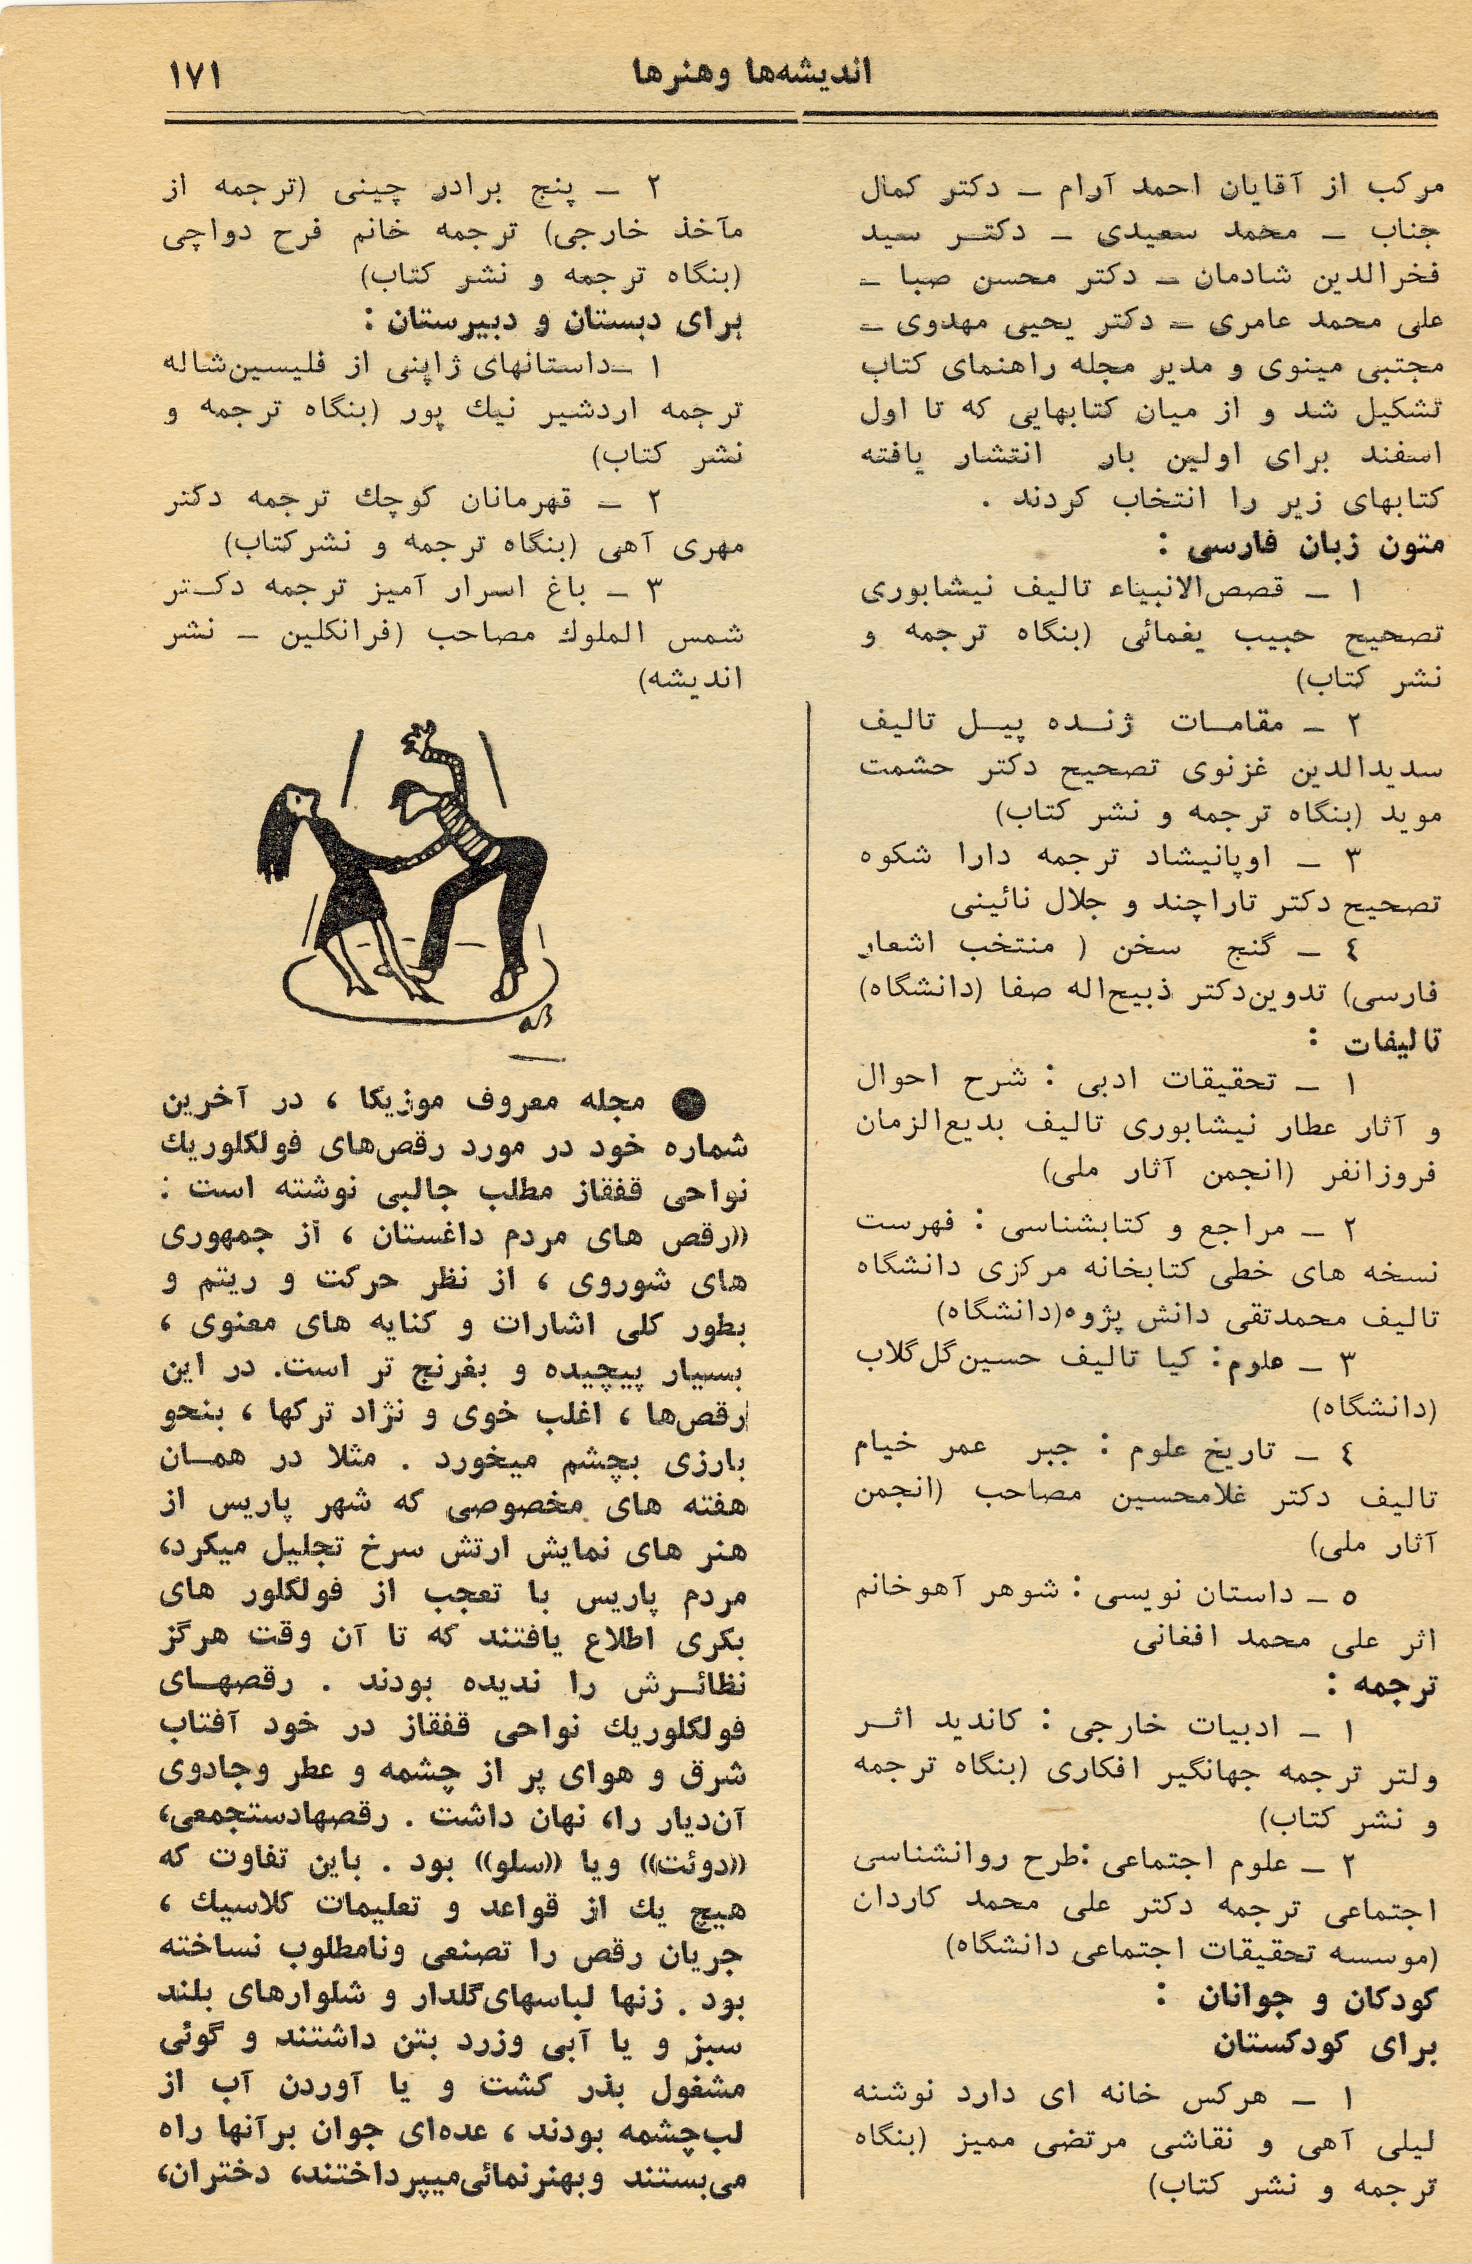 اندیشه‌ها وهنرها
۱۷۱
مرکب از آقایان احمد آرام ــ دکتر کمال
جناب ــ محمد سعیدی ــ دکتر سید
فخرالدین شادمان ــ دکتر محسن صبا ــ
علی محمد عامری ــ دکتر یحیی مهدوی ــ
مجتبی مینوی و مدیر مجله راهنمای کتاب
تشکیل شد و از میان کتابهایی که تا اول
اسفند برای اولین بار انتشار یافته
کتابهای زیر را انتخاب کردند .
متون زبان فارسی :
۱ ــ قصص‌الانبیاء تالیف نیشابوری
تصحیح حبیب یغمائی (بنگاه ترجمه و
نشر کتاب)
۲ ــ مقامات ژنده پیل تالیف
سدیدالدین غزنوی تصحیح دکتر حشمت
موید (بنگاه ترجمه و نشر کتاب)
۳ ــ اوپانیشاد ترجمه دارا شکوه
تصحیح دکتر تاراچند و جلال نائینی
٤ ــ گنج سخن ( منتخب اشعار
فارسی) تدوین‌دکتر ذبیح‌اله صفا (دانشگاه)
تالیفات :
۱ ــ تحقیقات ادبی : شرح احوال
و آثار عطار نیشابوری تالیف بدیع‌الزمان
فروزانفر (انجمن آثار ملی)
۲ ــ مراجع و کتابشناسی : فهرست
نسخه های خطی کتابخانه مرکزی دانشگاه
تالیف محمدتقی دانش پژوه(دانشگاه)
۳ ــ علوم: گیا تالیف حسین‌گل‌گلاب
(دانشگاه)
٤ ــ تاریخ علوم : جبر عمر خیام
تالیف دکتر غلامحسین مصاحب (انجمن
آثار ملی)
۵ ــ داستان نویسی : شوهر آهوخانم
اثر علی محمد افغانی
ترجمه :
۱ ــ ادبیات خارجی : کاندید اثر
ولتر ترجمه جهانگیر افکاری (بنگاه ترجمه
و نشر کتاب)
۲ ــ علوم اجتماعی :طرح روانشناسی
اجتماعی ترجمه دکتر علی محمد کاردان
(موسسه تحقیقات اجتماعی دانشگاه)
کودکان و جوانان :
برای کودکستان
۱ ــ هرکس خانه ای دارد نوشته
لیلی آهی و نقاشی مرتضی ممیز (بنگاه
ترجمه و نشر کتاب)
۲ ــ پنج برادر چینی (ترجمه از
مآخذ خارجی) ترجمه خانم فرح دواچی
(بنگاه ترجمه و نشر کتاب)
برای دبستان و دبیرستان :
۱ ــ‌داستانهای ژاپنی از فلیسین‌شاله
ترجمه اردشیر نیك پور (بنگاه ترجمه و
نشر کتاب)
۲ ــ قهرمانان کوچك ترجمه دکتر
مهری آهی (بنگاه ترجمه و نشرکتاب)
۳ ــ باغ اسرار آمیز ترجمه دکتر
شمس الملوك مصاحب (فرانکلین ــ نشر
اندیشه)
● مجله معروف موزیکا ، در آخرین
شماره خود در مورد رقص‌های فولکلوریك
نواحی قفقاز مطلب جالبی نوشته است :
((رقص های مردم داغستان ، از جمهوری
های شوروی ، از نظر حرکت و ریتم و
بطور کلی اشارات و کنایه های معنوی ،
بسیار پیچیده و بغرنج تر است. در این
رقص‌ها ، اغلب خوی و نژاد ترکها ، بنحو
بارزی بچشم میخورد . مثلا در همان
هفته های مخصوصی که شهر پاریس از
هنر های نمایش ارتش سرخ تجلیل میکرد،
مردم پاریس با تعجب از فولکلور های
بکری اطلاع یافتند که تا آن وقت هرگز
نظائرش را ندیده بودند . رقصهای
فولکلوریك نواحی قفقاز در خود آفتاب
شرق و هوای پر از چشمه و عطر وجادوی
آن‌دیار را، نهان داشت . رقصهادستجمعی،
((دوئت)) ویا ((سلو)) بود . باین تفاوت که
هیچ یك از قواعد و تعلیمات کلاسیك ،
جریان رقص را تصنعی ونامطلوب نساخته
بود . زنها لباسهای‌گلدار و شلوارهای بلند
سبز و یا آبی وزرد بتن داشتند و گوئی
مشغول بذر کشت و یا آوردن آب از
لب‌چشمه بودند ، عده‌ای جوان برآنها راه
می‌بستند وبهنرنمائی‌میپرداختند، دختران،